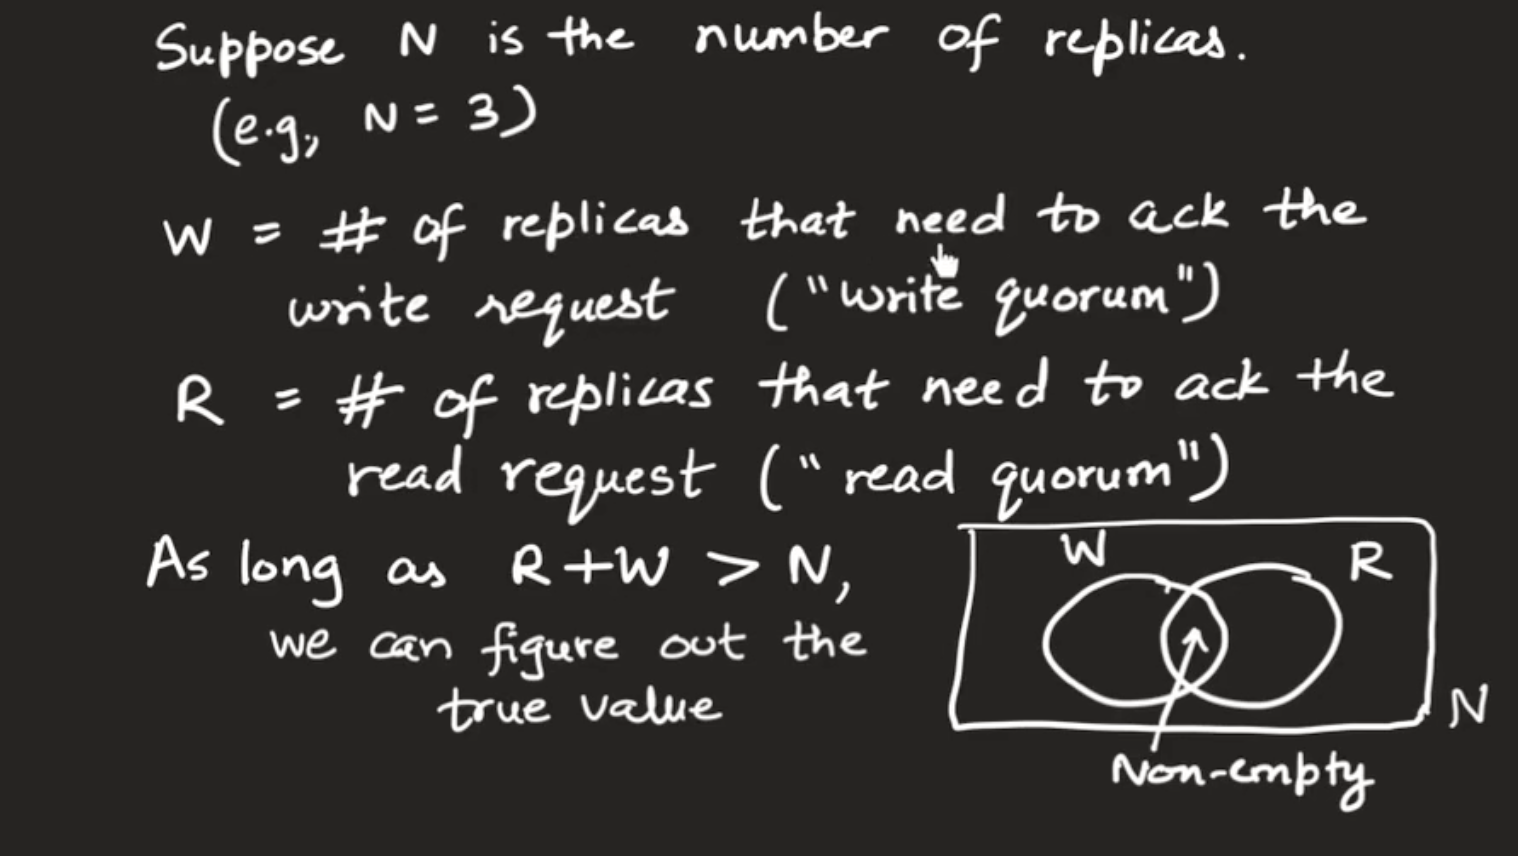 Suppose N is the number of replicas.
(e.g., N = 3)
W = # of replicas that need to ack the
write request ("write quorum")
R = # of replicas that need to ack the
read request ("read quorum")
As long as R+W > N,
we can figure out the
true value
W
R
N
Non-empty